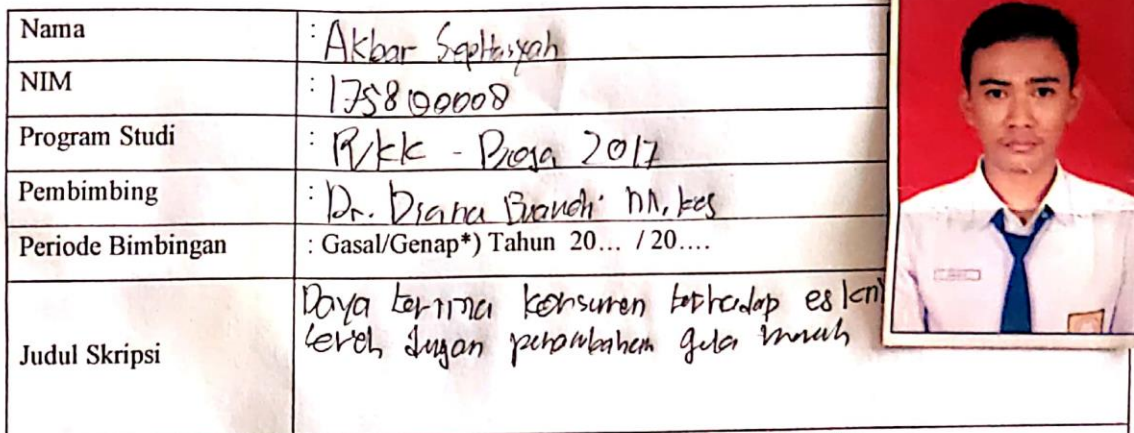 Nama : Akbar Septiansyah
NIM : 1758100008
Program Studi : PVKK - Boga 2017
Pembimbing : Dr. Diana Evawati M.kes
Periode Bimbingan : Gasal/Genap*) Tahun 20... / 20....
Judul Skripsi
Daya terima konsumen terhadap es
dengan penambahan gula merah